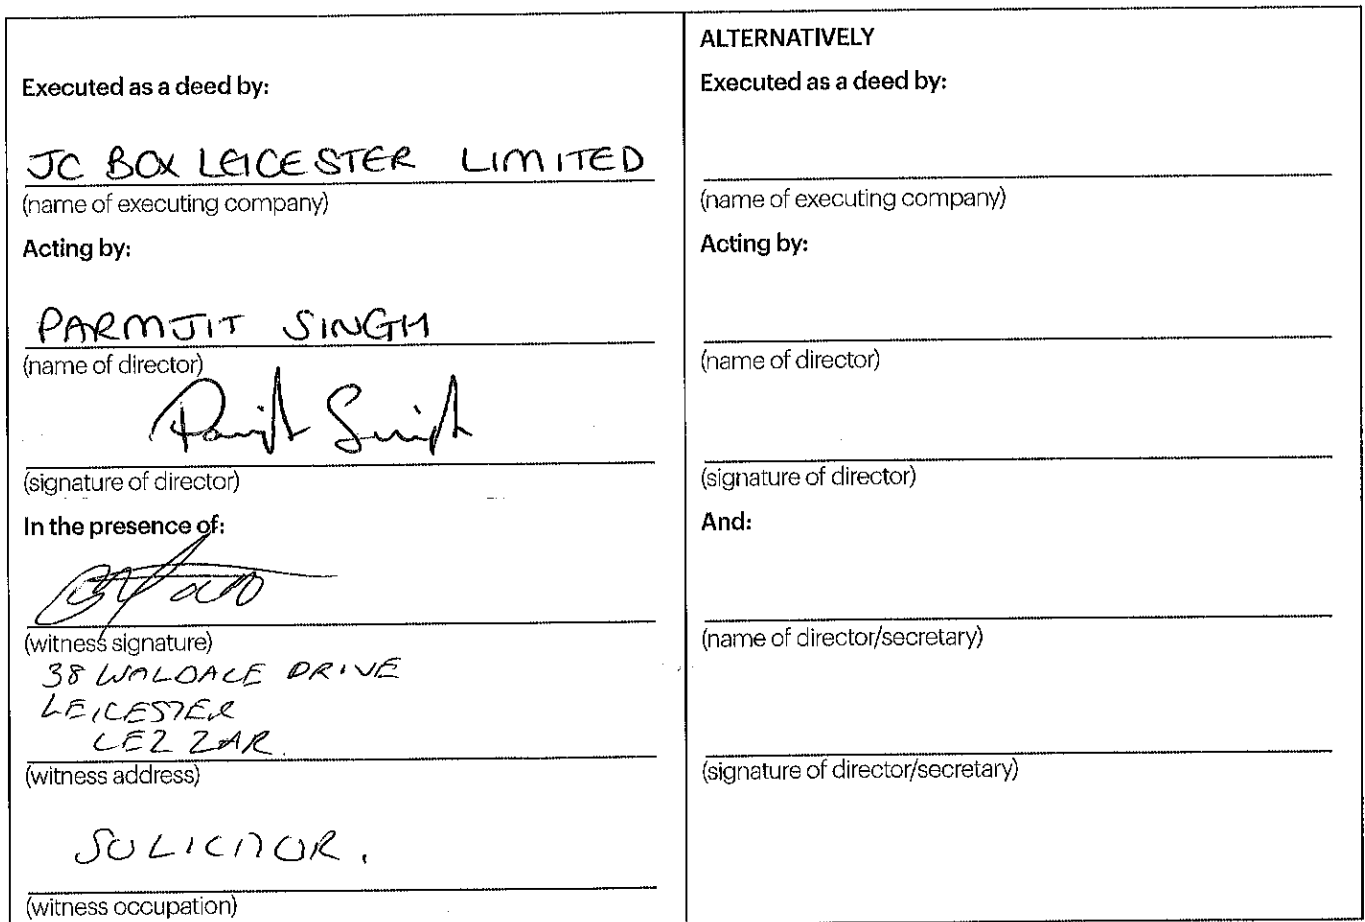 Executed as a deed by:
JC BOX LEICESTER LIMITED
(name of executing company)
Acting by:
PARMJIT SINGH
(name of director)
(signature of director)
In the presence of:
(witness signature)
38 WALDALE DRIVE
LEICESTER
LE2 2AR.
(witness address)
SOLICITOR.
(witness occupation)
ALTERNATIVELY
Executed as a deed by:
(name of executing company)
Acting by:
(name of director)
(signature of director)
And:
(name of director/secretary)
(signature of director/secretary)